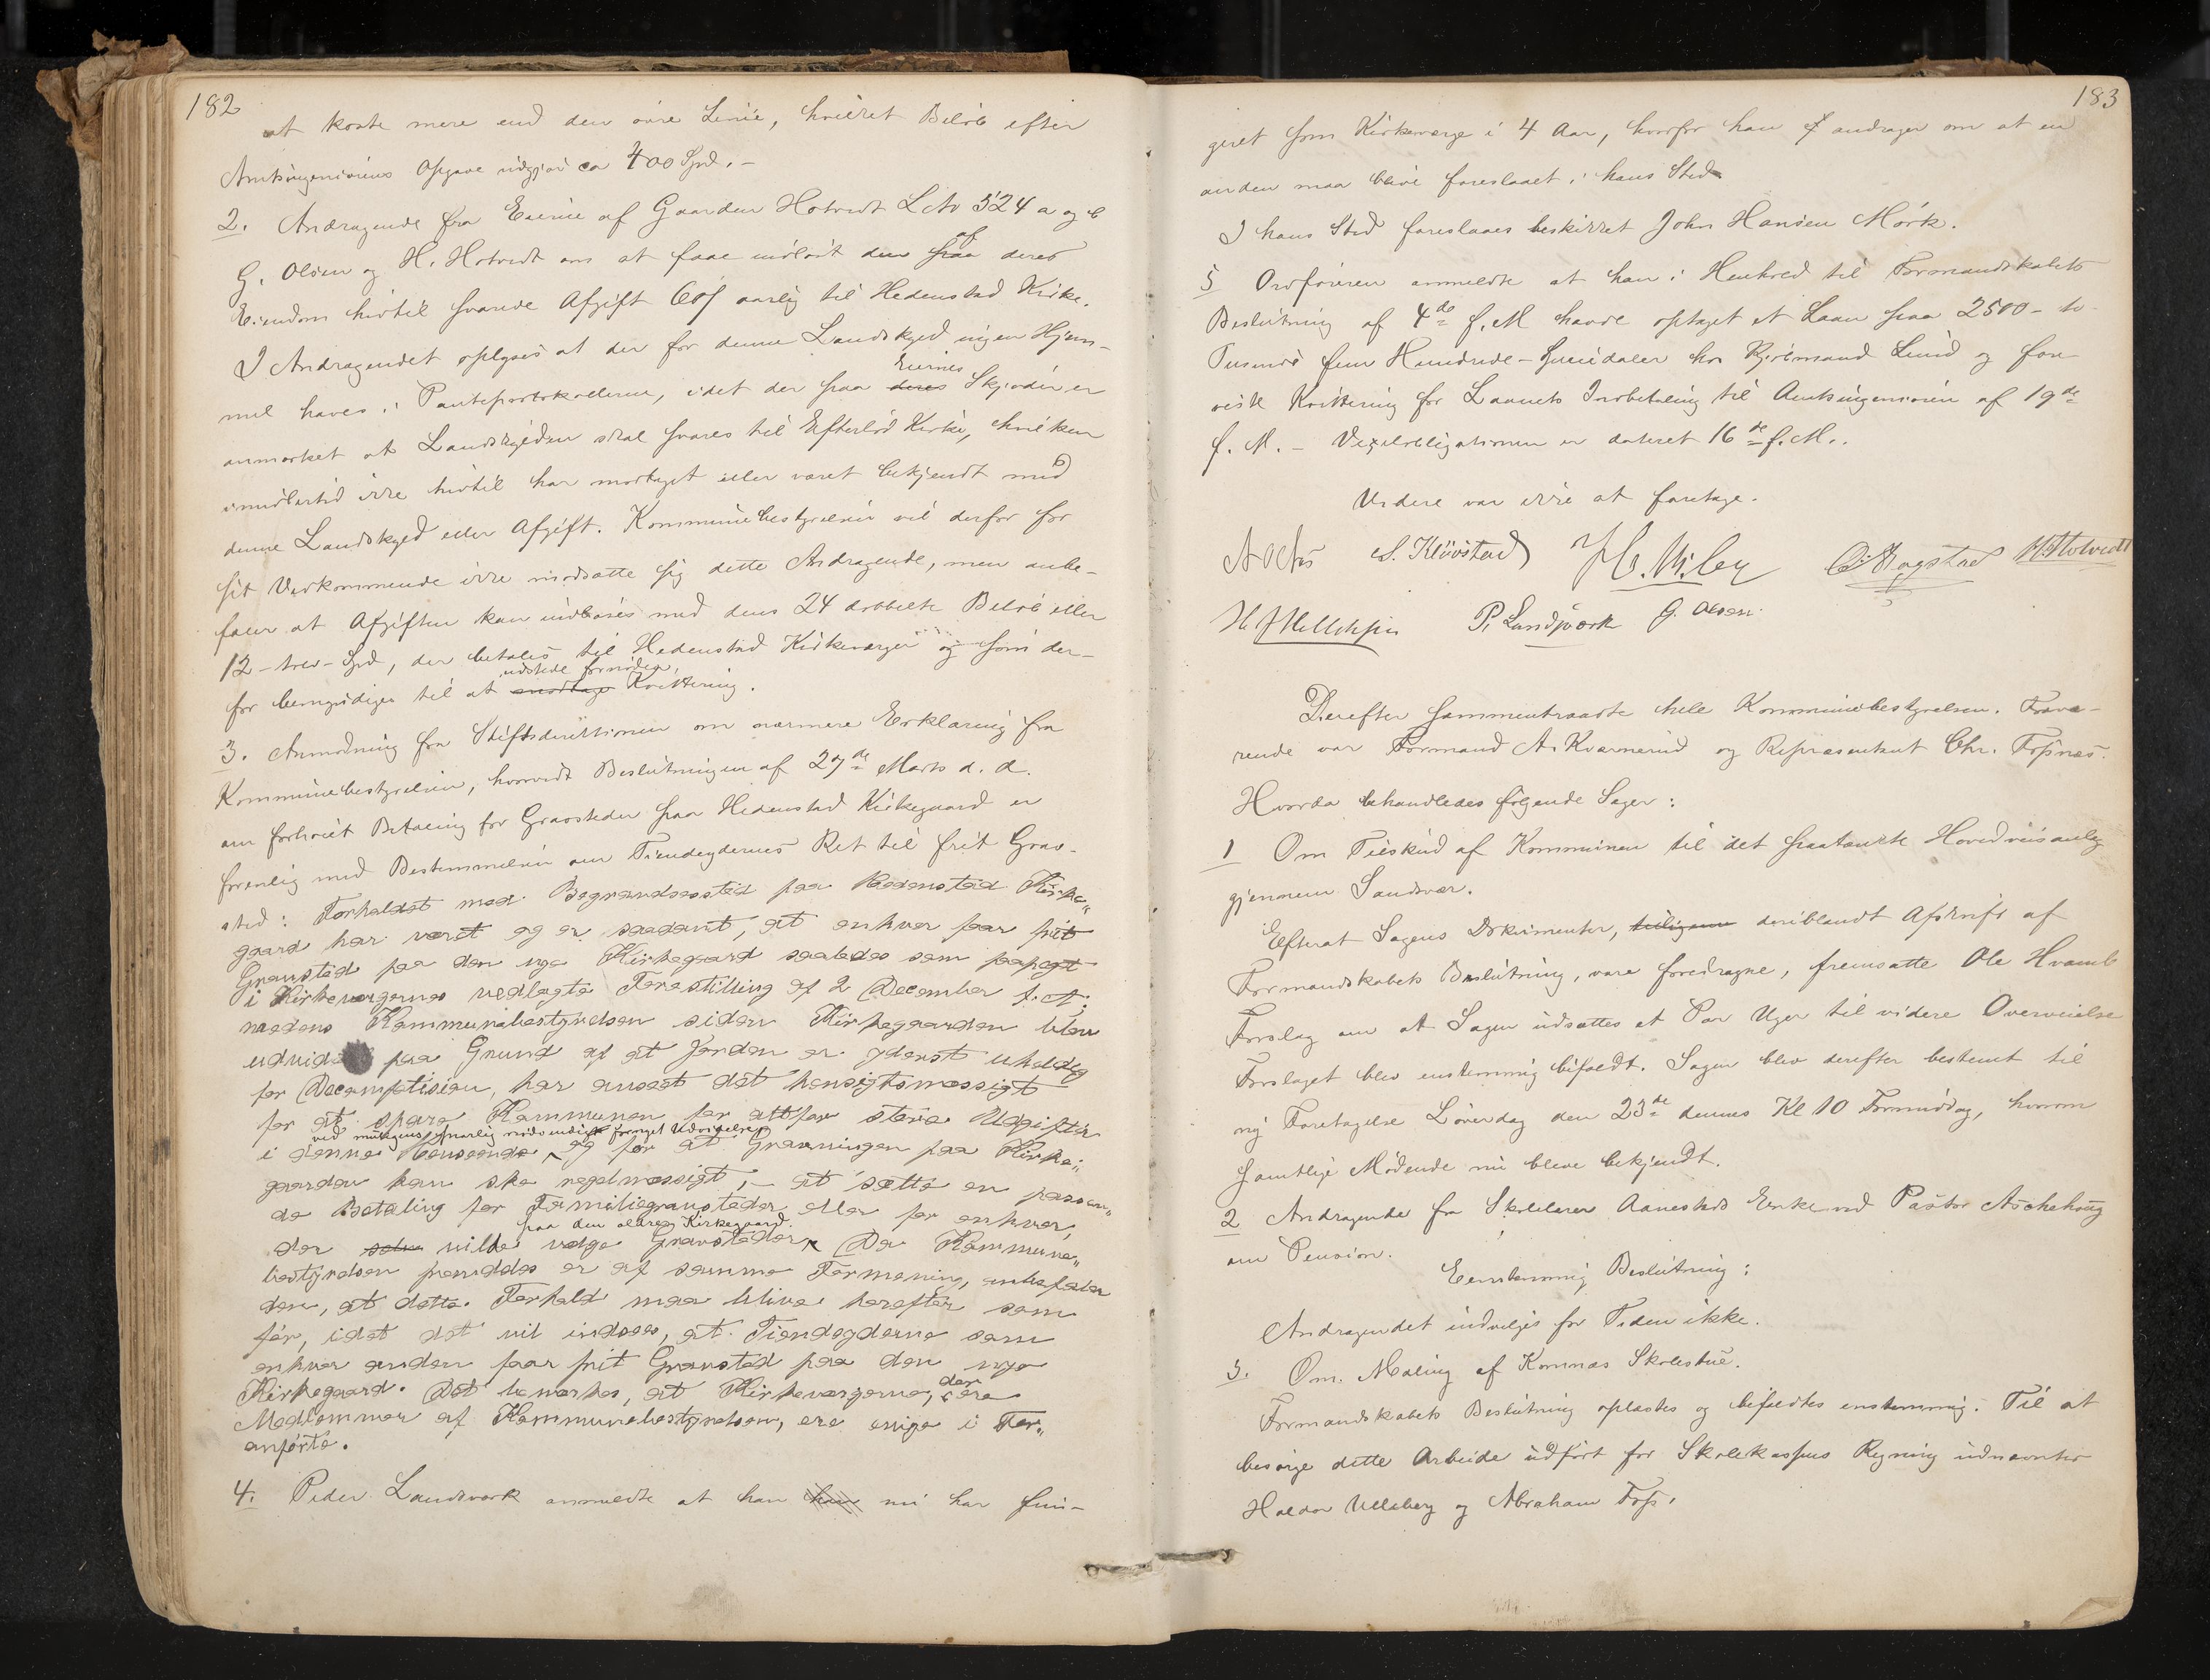 182
at koste mere end den øvre Linie, hvilket Beløb efter
Amtsingeniørens Opgave udgjør ca 400 Spd. –
2. Andragende fra Eierne af Gaarden Hotvedt LNo 324 a og b
G. Olsen og H. Hotvedt om at faae indløst den af deres
Eiendom hidtil svarede Afgift 60 ß aarlig til Hedenstad Kirke.
I Andragendet oplyses at der for denne Landskyld ingen Hjem-
mel haves i Panteprotokollerne, idet der paa Eiernes Skjøder er
anmærket at Landskylden skal svares til Efteløds Kirke, hvilken
imidlertid ikke hidtil har modtaget eller været bekjendt med
denne Landskyld eller Afgift. Kommunebestyrelsen vil derfor for
sit Vedkommende ikke modsætte sig dette Andragende, men anbe-
faler at Afgiften kan indløses med dens 24 dobbelte Beløb eller
12 – tolv – Spd, der betales til Hedenstad Kirkeværger og som der-
for bemyndiges til at udstede fornøden Kvittering.
3. Anmodning fra Stiftsdirektionen om nærmere Erklæring fra
Kommunebestyrelsen, hvorvidt Beslutningen af 27de Marts d. A.
om forhøiet Betaling for Gravsteder paa Hedenstad Kirkegaard er
forenlig med Bestemmelsen om Tiendeydernes Ret til frit Grav-
sted: Forholdet med Begravelsessted paa Hedenstad Kirke„
gaard har været og er saadant, at enhver faar frit
Gravsted paa den nye Kirkegaard saaledes som paapegt
i Kirkeværgernes vedlagte Forestilling af 2 December f. A;
medens Kommunebestyrelsen siden Kirkegaarden blev
udvidet paa Grund af at Jorden er yderst uheldig
for Decomposition, har anseet det hensigtsmæssigt
for at spare Kommunen for altfor store Udgifter
ved muligens snarlig nødvendig fornyet Udvidelse
i denne Henseende, og for at Gravningen paa Kirke„
gaarden kan ske regelmæssigt, – at sætte en passen„
de Betaling for Familiegravsteder eller for enhver,
paa den ældre Kirkegaard.
der selv vilde vælge Gravsteder. Da Kommune„
bestyrelsen fremdeles er af samme Formening, anbefaler
den, at dette Forhold maa blive herefter som
før, idet det vil indsees, at Tiendeyderne som
enhver anden faar frit Gravsted paa den nye
Kirkegaard. Det bemærkes, at Kirkeværgerne, der ere
Medlemmer af Kommunebestyrelsen, ere enige i For„
anførte.
4. Peder Landsværk anmeldte at han nu har fun-
183
geret som Kirkeværge i 4 Aar, hvorfor han andrager om at en
anden maa blive foreslaaet i hans Sted.
I hans Sted foreslaaes beskikket John Hansen Mørk.
5 Ordføreren anmeldte at han i Henhold til Formandskabets
Beslutning af 4de f. M havde optaget et Laan paa 2500 – to
Tusinde fem Hundrede – Speciedaler hos Kjøbmand Lund og fore-
viste Kvittering for Laanets Indbetaling til Amtsingeniøren af 19de
f. M. – Vexelobligationen er dateret 16de f. M.
Videre var ikke at foretage.
S. Kløvstad O. Bagstad H. Hotvedt
P. Landsværk G. Olsen
Derefter sammentraadte hele Kommunebestyrelsen. Fravæ-
rende var Formand A. Kværnerud og Repræsentant Chr. Fossnæs.
Hvorda behandledes følgende Sager:
1 Om Tilskud af Kommunen til det paatænkte Hovedveisanlæg
gjennem Sandsvær.
Efterat Sagens Dokumenter, deriblandt Afskrift af
Formandskabets Beslutning, vare foredragne, fremsatte Ole Hvamb
Forslag om at Sagen udsattes et Par Uger til videre Overveielse
Forslaget blev enstemmig bifaldt. Sagen blev derefter bestemt til
ny Foretagelse Løverdag den 23de dennes Kl 10 Formiddag, hvorom
samtlige Mødende nu bleve bekjendt.
2 Andragende fra Skolelærer Aanestads Enke ved Pastor Aschehoug
om Pension.
Eenstemmig Beslutning:
Andragendet indvilges for Tiden ikke.
3. Om Maling af Komnæs Skolestue.
Formandskabets Beslutning oplæstes og bifaldtes enstemmig. Til at
besørge dette Arbeide udført for Skolekassens Regning udnævntes
Haldor Ullaberg og Abraham Foss.